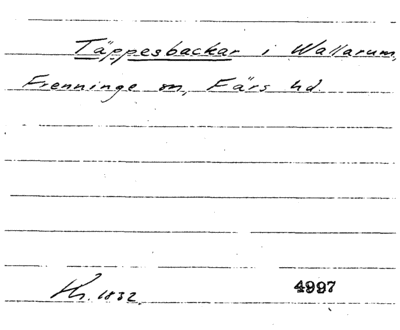 Täppesbackar i Wallarum,
Frenninge sn, Färs hd.
Hs. 1832. 4997